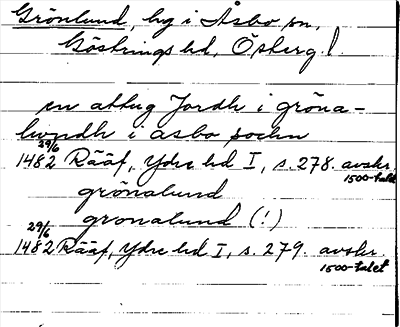 Grönlund, by i Åsbo sn,
Göstrings hd, Österg.!
en attug Jordh i gröna-
lwndh i asbo sochn
29/6
1482 Rääf, Ydre hd I, s. 278. avskr.
1500-talet
grönalund
gronalund (!)
29/6
1482 Rääf, Ydre hd I, s. 279. avskr.
1500-talet